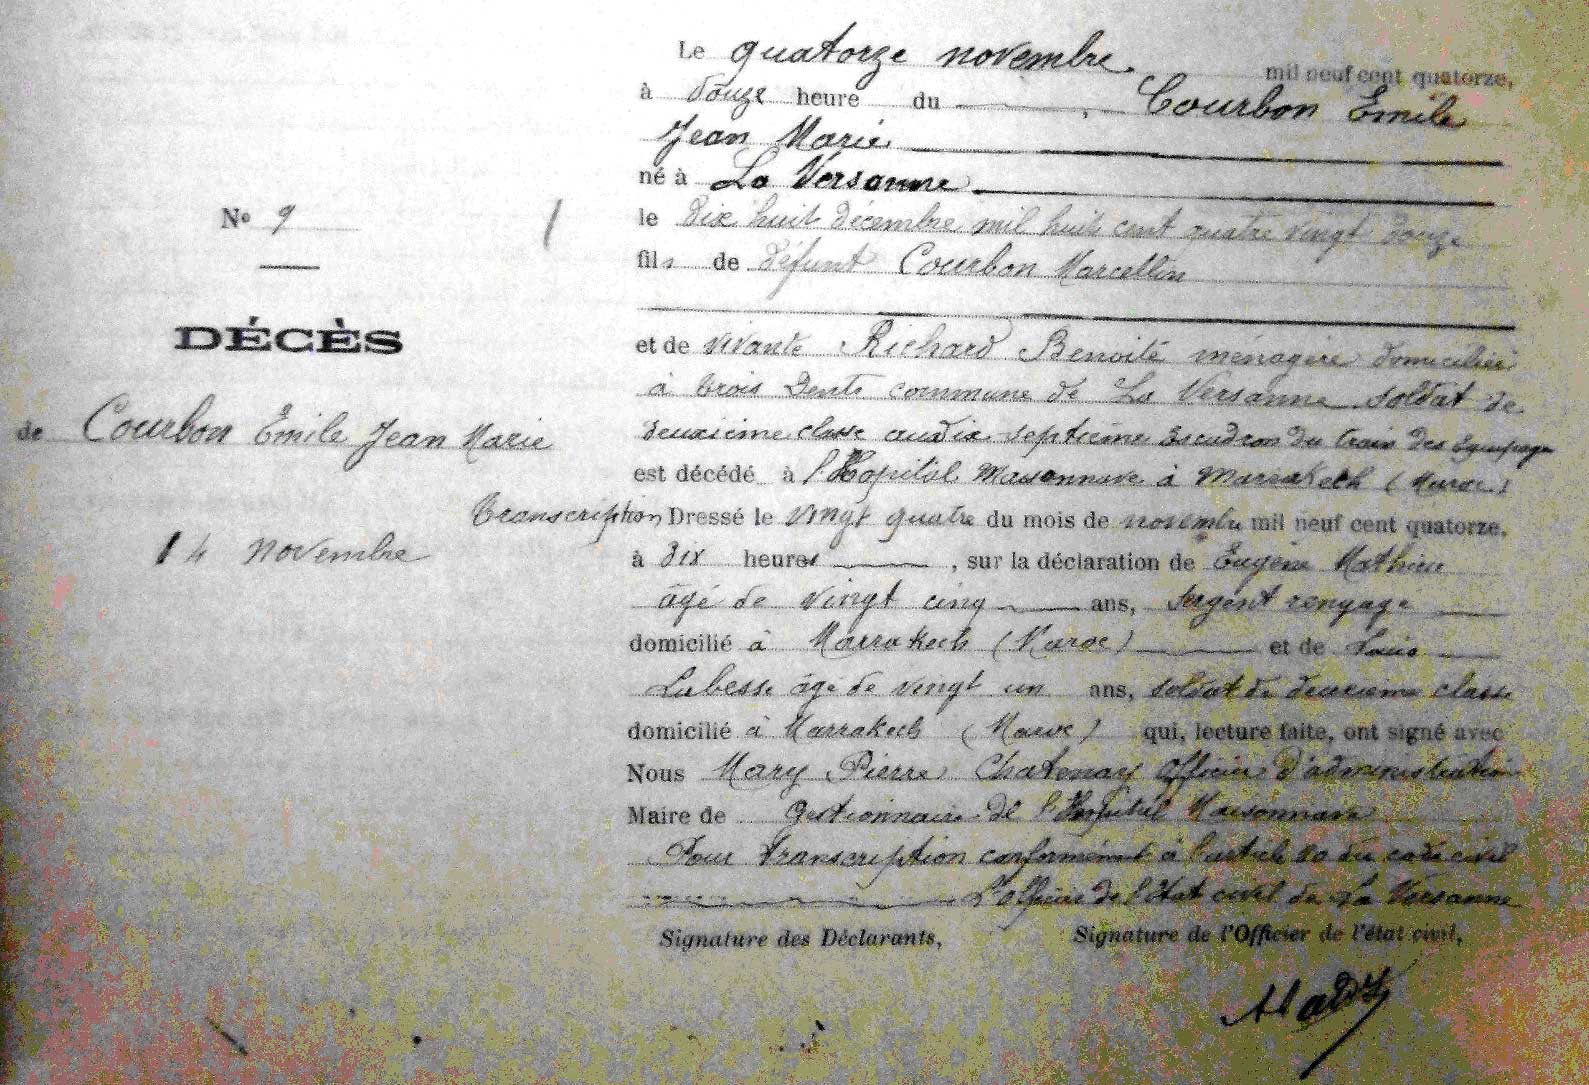 N° 9
DÉCÈS
de Courbon Emile Jean Marie
14 novembre
Le quatorze novembre mil neuf cent quatorze,
à douze heure du , Courbon Emile
Jean Marie
né à La Versanne
le dix huit décembre mil huit cent quatre vingt douze
fils de défunt Courbon Marcellin
et de vivante Richard Benoite ménagère domiciliée
à trois Dents commune de La Versanne soldat de
deuxième classe au dix septième Escadron du train des Equipages
est décédé à l'Hopital Maisonnave à Marrakech (Maroc)
Transcription Dressé le vingt quatre du mois de novembre mil neuf cent quatorze,
à dix heures , sur la déclaration de Eugène Mathieu
âgé de vingt cinq ans, sergent rengagé
domicilié à Marrakech (Maroc) et de Louis
Labesse âgé de vingt un ans, soldat de deuxième classe
domicilié à Marrakech (Maroc) qui, lecture faite, ont signé avec
Nous Mary Pierre Chatenay Officier d'administration
Maire de gestionnaire de l'Hopital Maisonnave
Pour transcription conformément à l'article 80 du code civil
L'officier de l'état civil de La Versanne
Signature des Déclarants, Signature de l'Officier de l'état civil,